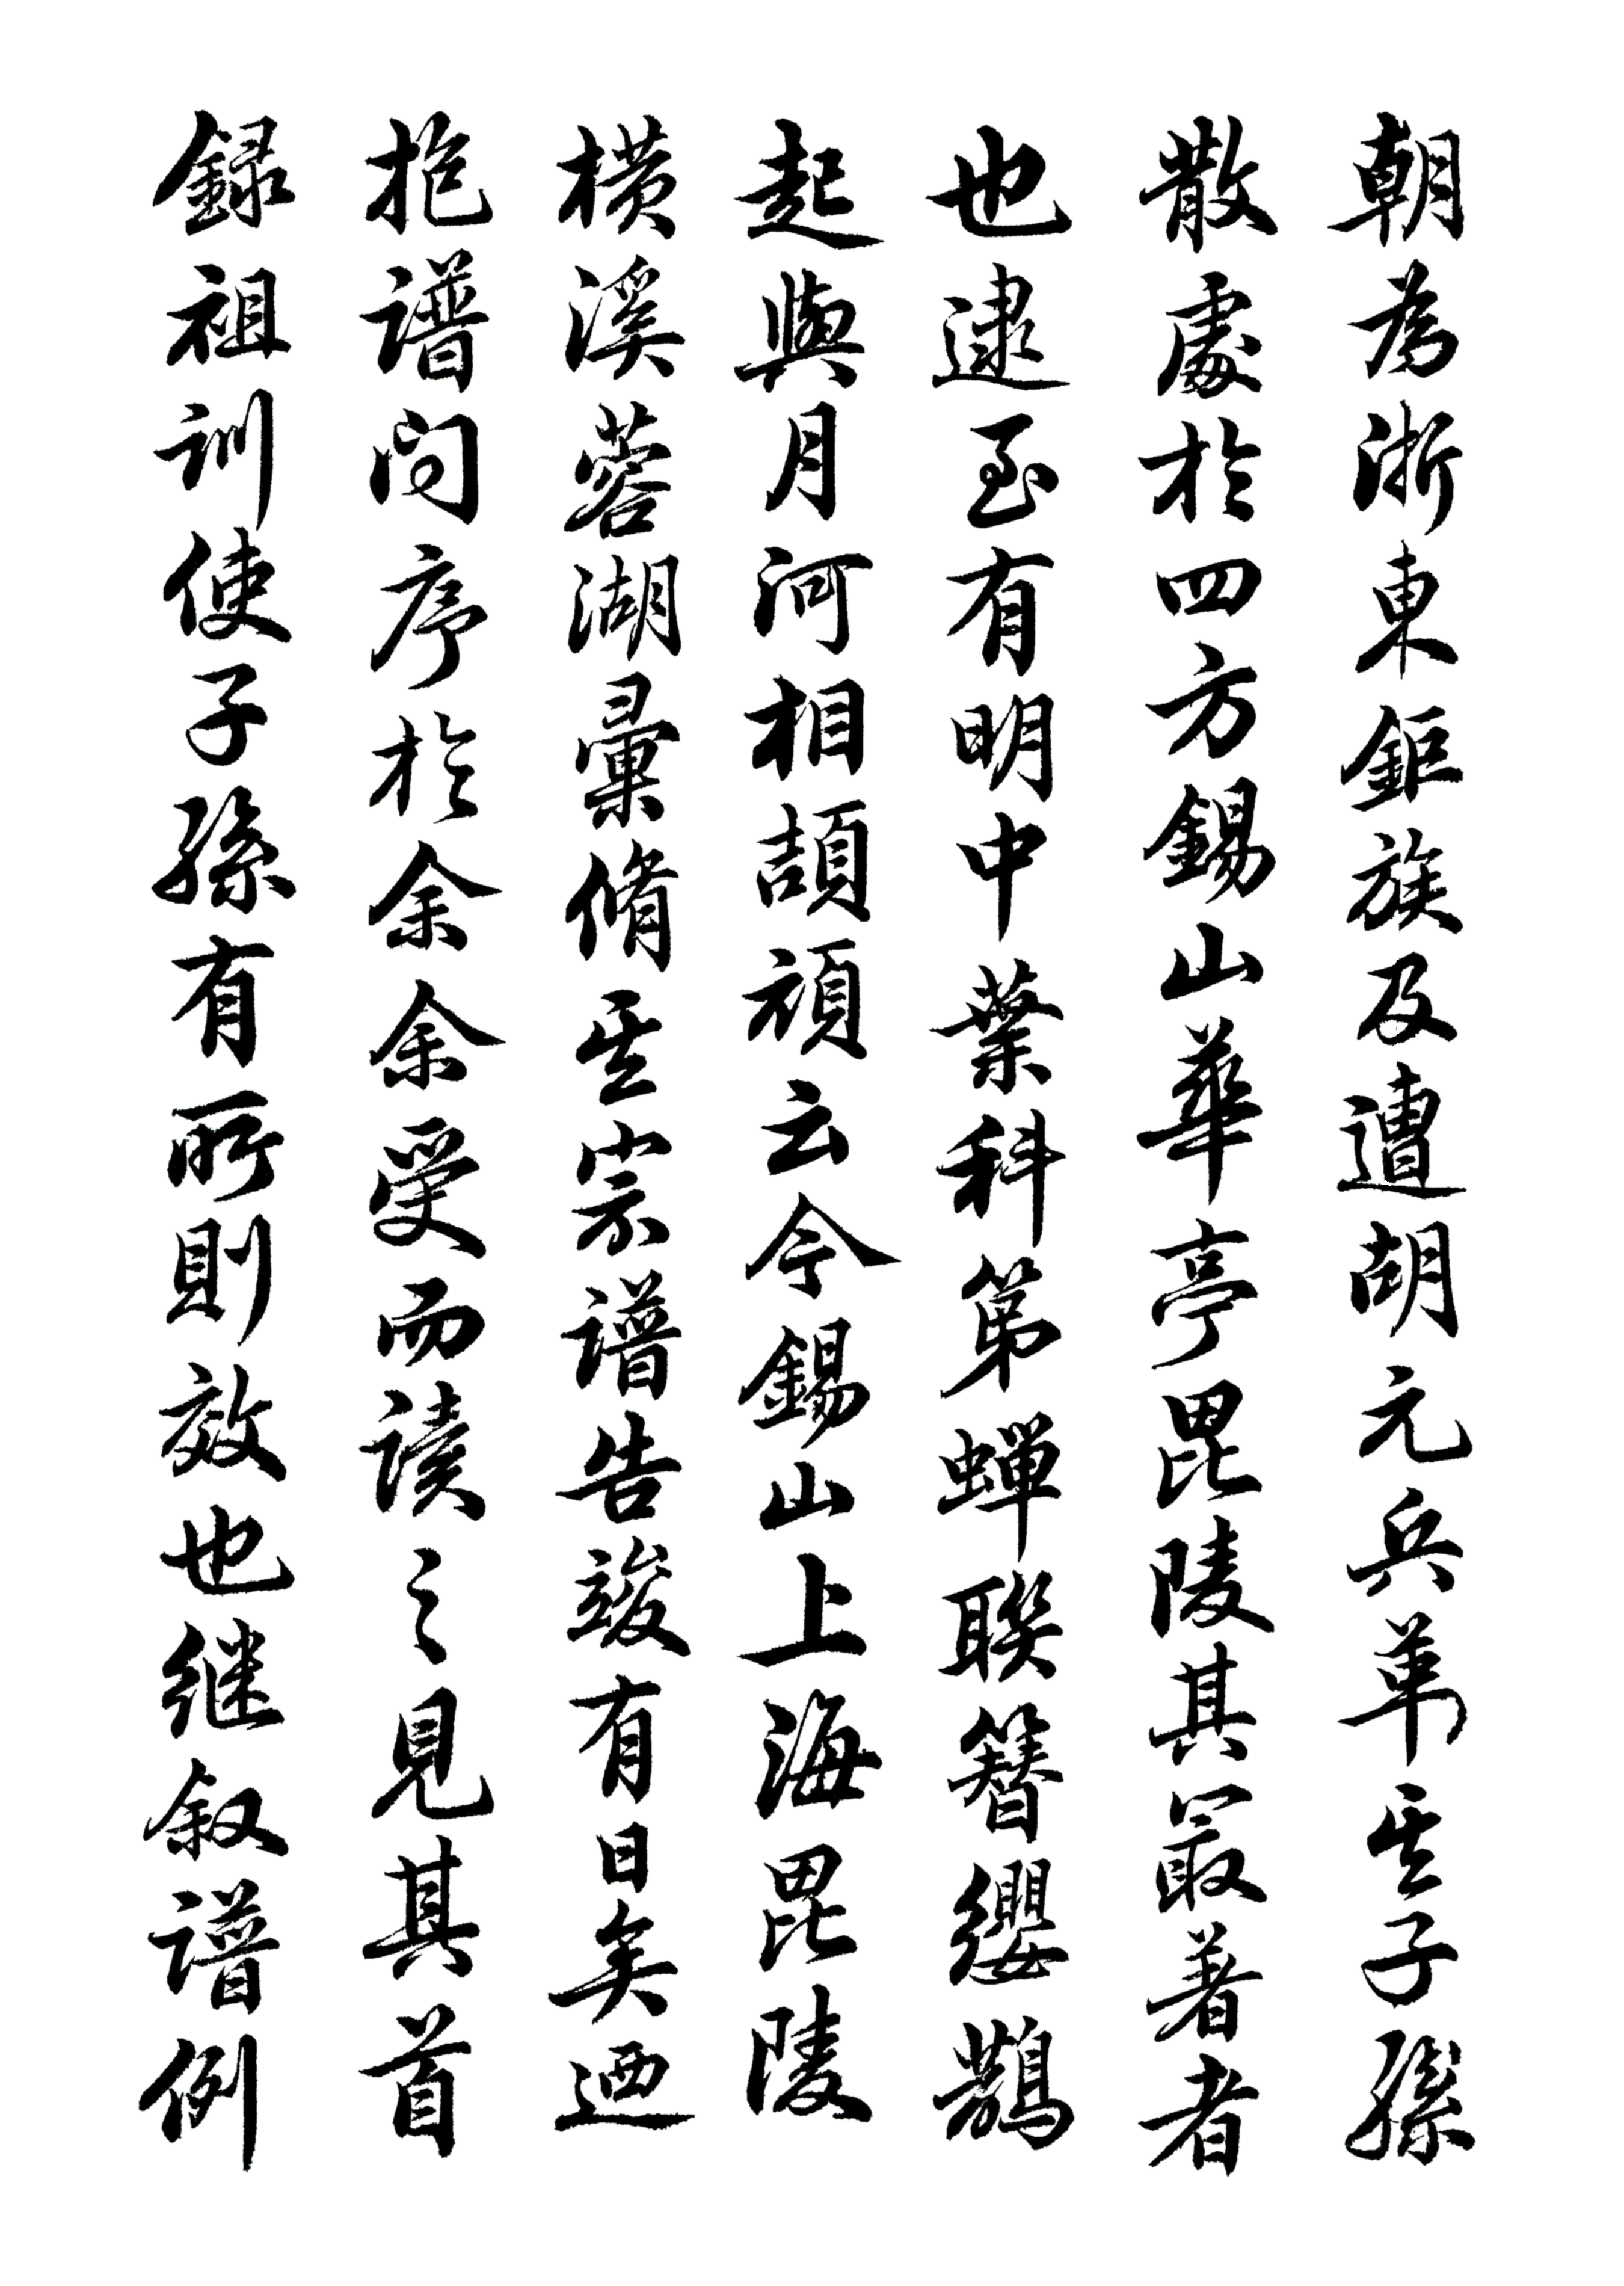 朝為浙東鉅族及遭胡元兵革其子孫
散處於四方錫山華亭毘陵其最著者
也逮至有明中葉科第蟬聯簪纓鵲
起與月河相頡頏云今錫山上海毘陵
橫溪蓉湖彙脩其宗譜告竣有日矣迺
抱譜问序於余余受而读之見其首
録祖训使子孫有所則效也继叙譜例